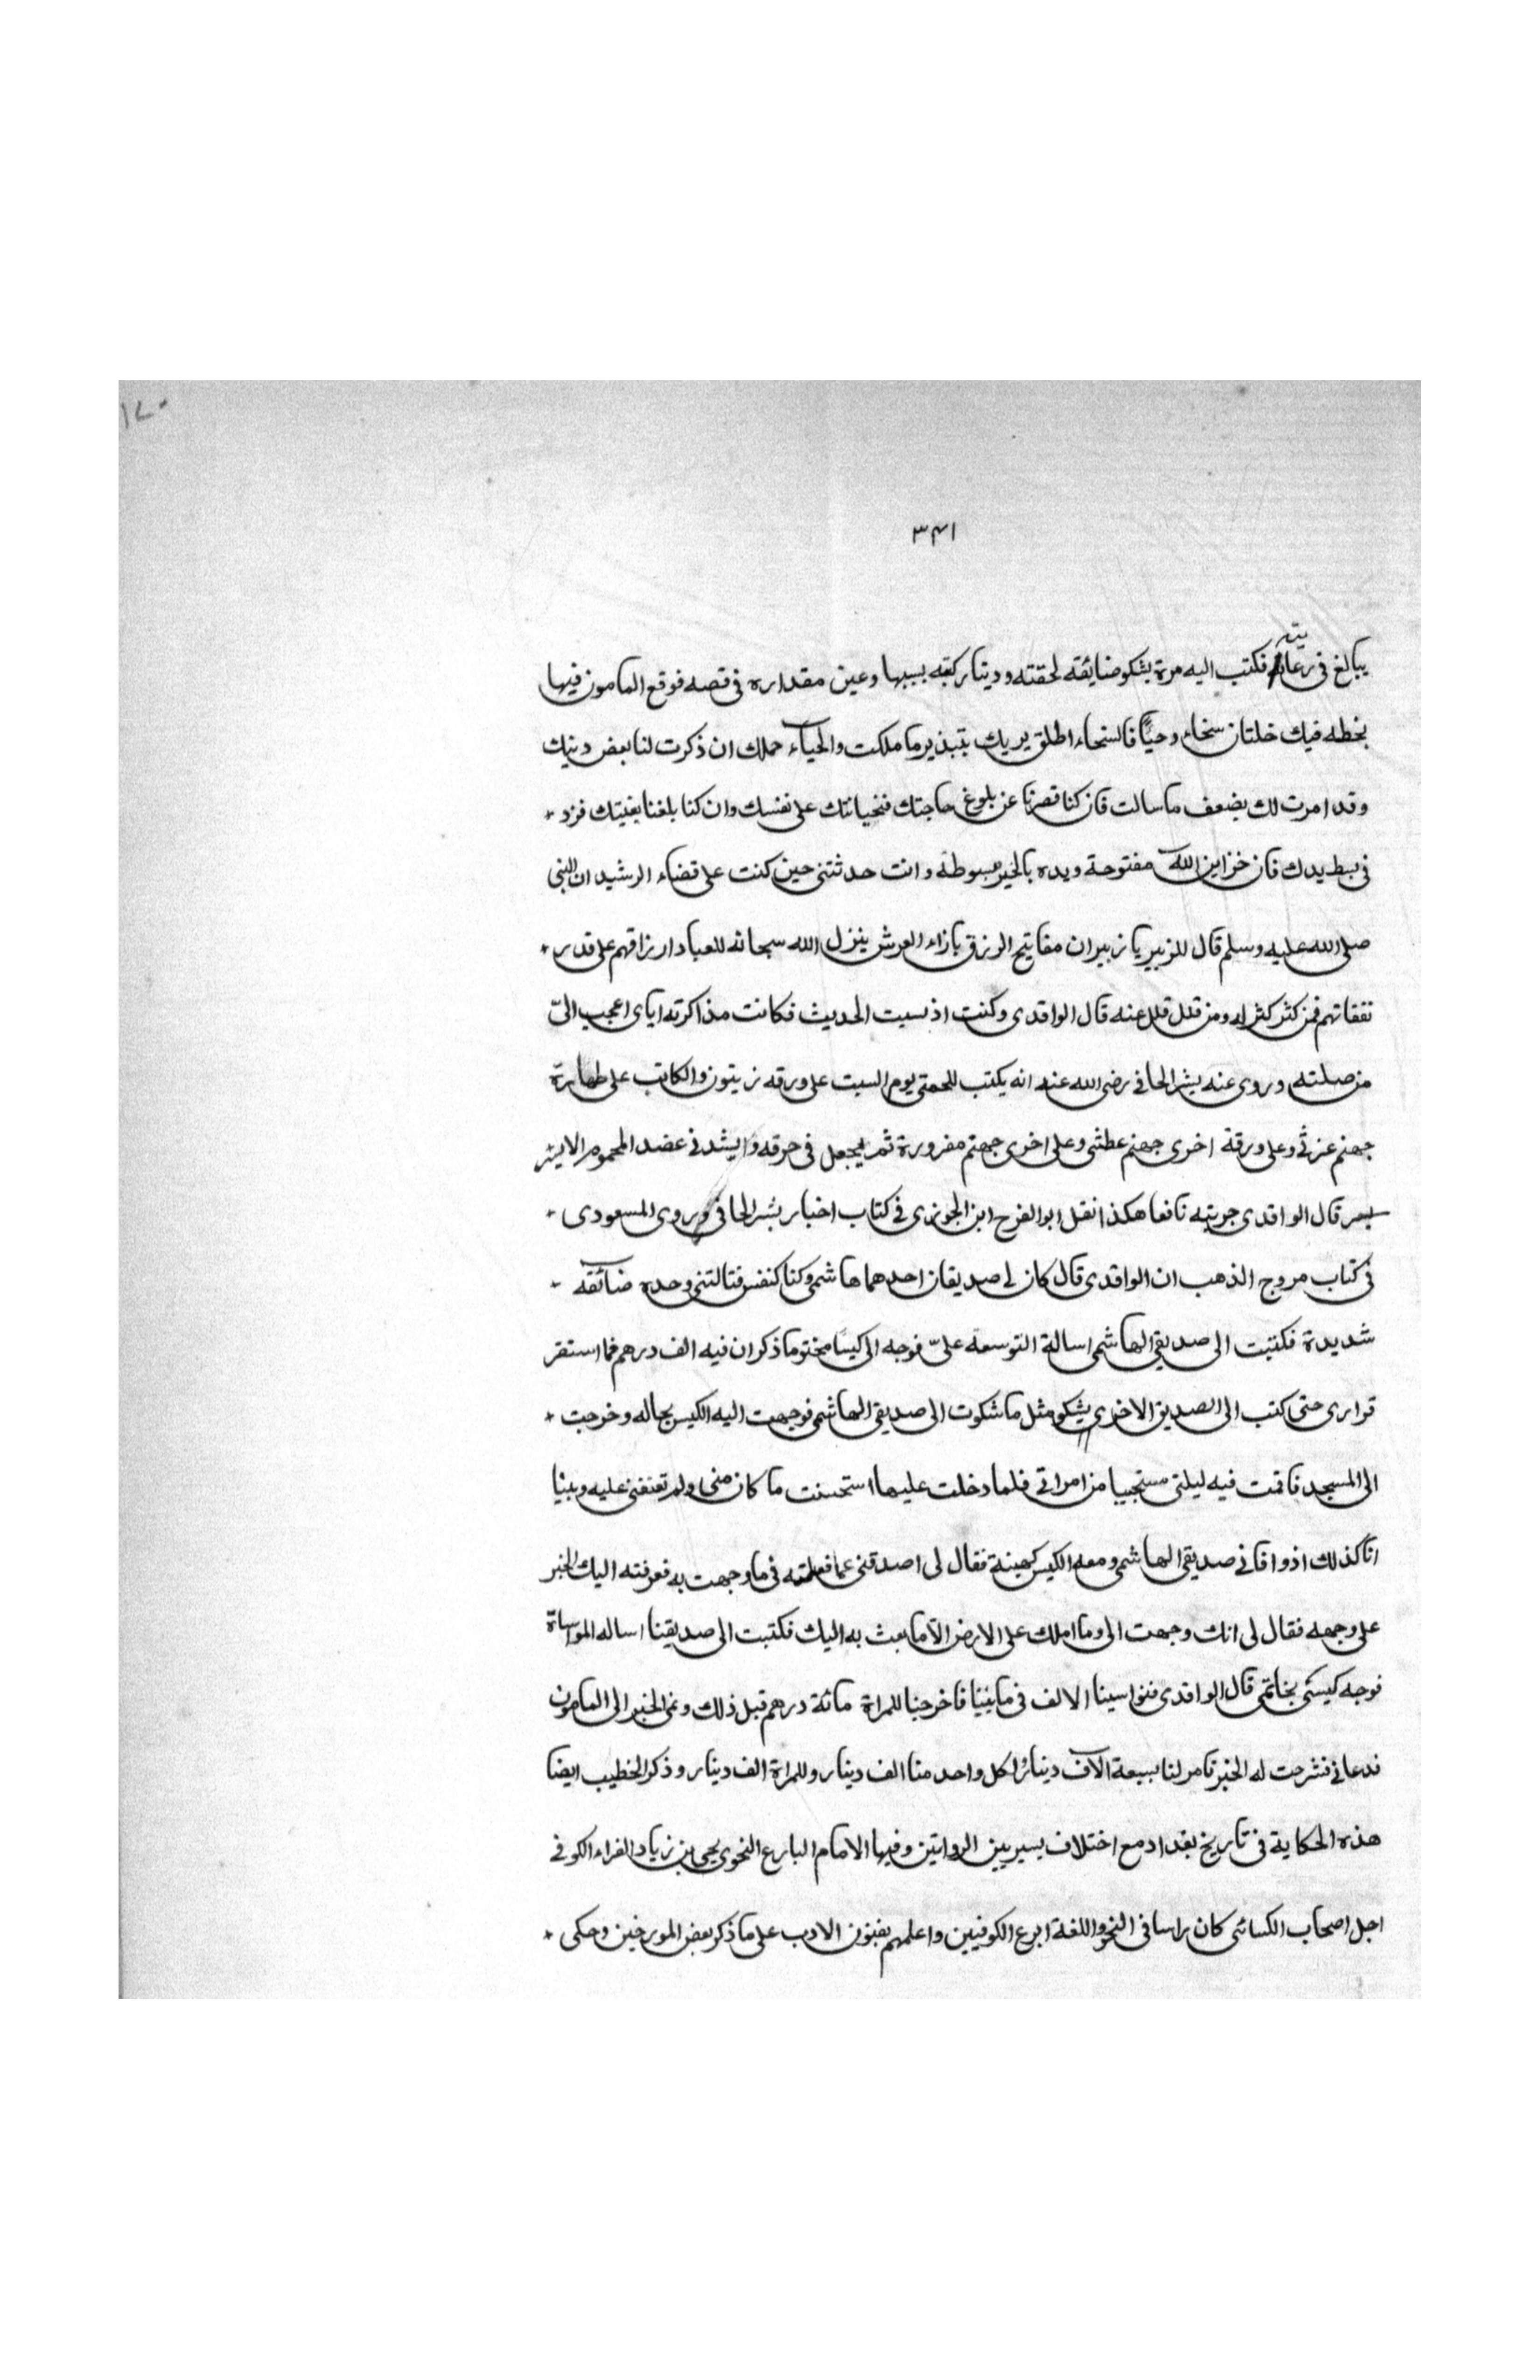 ١٧٠
٣٤١
يبالغ فى رعايته فكتب اليه مرة يشكو ضائقة لحقته ودينا ركبه بسببها وعين مقداره فى قصه فوقع المامون فيها
بخطه فيك خلتان سخاء وحياً فالسخاء اطلق يديك بتبذير ما ملكت والحياء حملك ان ذكرت لنا بعض دينك
وقد امرت لك بضعف ما سالت فان كنا قصرنا عن بلوغ حاجتك فبخيانتك على نفسك وان كنا بلغنا بغيتك فزد
فى بسط يدك فان خزاين الله مفتوحة ويده بالخير مبسوطة وانت حدثتنى حين كنت على قضاء الرشيد ان النبى
صلى الله عليه وسلم قال للزبير يا زبير ان مفاتيح الرزق بازاء العرش ينزل الله سبحانه للعباد ارزاقهم على قدر
نفقاتهم فمن كثر كثر له ومن قلل قلل عنه قال الواقدى وكنت انسيت الحديث فكانت مذاكرته اياى اعجب الىّ
من صلته وروى عنه بشر الحافى رضى الله عنه انه يكتب للحمى يوم السبت على ورقه زيتون والكاتب على طهارة
جهنم غرثى وعلى ورقة اخرى جهنم عطشى وعلى اخرى جهنم مقرورة ثم يجعل فى خرقه وايشد فى عضد المحموم الايسر
قال الواقدى جربته نافعا هكذا نقل ابو الفرج ابن الجوزى فى كتاب اخبار بشر الحافى وروى المسعودى
فى كتاب مروج الذهب ان الواقدى قال كان لى صديقان احدهما هاشمى وكنا كنفس فنالتنى وحده ضائقه
شديدة فكتبت الى صديقى الهاشمى اسالة التوسعة علىّ فوجه الى كيسا مختوما ذكر ان فيه الف درهم فما استقر
قرارى حتى كتب الى الصديق الاخرى يشكو مثل ما شكوت الى صديقى الهاشمى فوجهت اليه الكيس بحاله وخرجت
الى المسجد فاقمت فيه ليلتى مستحييا من امراتى فلما دخلت عليها استحسنت ما كان منى ولم تعنفنى عليه وبينا
انا كذلك اذ وافانى صديقى الهاشمى ومعه الكيس كهيئة فقال لى اصدقنى عما فعلته فى ما وجهت به فعرفته اليك الخبر
على وجهه فقال لى انك وجهت الى وما املك على الارض الا ما بعث به اليك فكتبت الى صديقنا اساله المواساة
فوجه كيستى بخاتمى قال الواقدى فتواسينا الالف فى ما بيننا فاخرجنا للمراة مائة درهم قبل ذلك ونمى الخبر الى المامون
فدعانى فشرحت له الخبر فامر لنا بسبعة الآف دينار لكل واحد منا الف دينار وللمراة الف دينار وذكر الخطيب ايضا
هذه الحكاية فى تاريخ بغداد مع اختلاف يسير بين الرواتين وفيها الامام البارع النحوى يحيى بن زياد الفراء الكوفى
اجل اصحاب الكسائى كان راسا فى النحو واللغة ابرع الكوفيين واعلمهم بفنون الادب على ما ذكر بعض المورخين وحكى